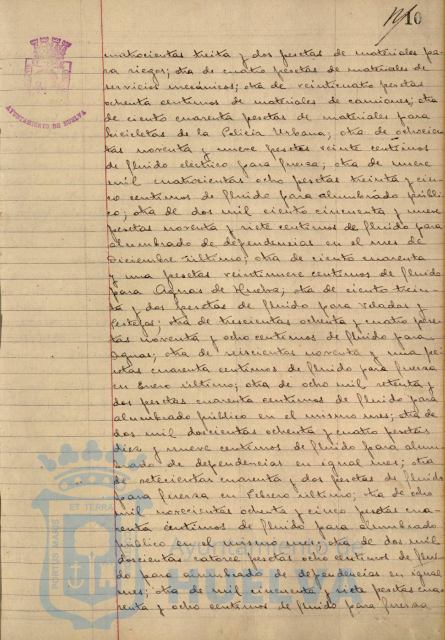 10
AYUNTAMIENTO DE HUELVA
cuatrocientas treita y dos pesetas de materiales pa-
ra riegos; otra de cuatro pesetas de materiales de
servicios mecánicos; otra de veinticuatro pesetas
ochenta centimos de materiales de camiones; otra
de ciento cuarenta pesetas de materiales para
bicicletas de la Policia Urbana; otra de ochocien-
tas noventa y nueve pesetas veinte centimos
de fluido electrico para fuerza; otra de nueve
mil cuatrocientas ocho pesetas treinta y cin-
co centimos de fluido para alumbrado públi-
co; otra de dos mil ciento cincuenta y nueve
pesetas noventa y siete centimos de fluido para
alumbrado de dependencias en el mes de
Diciembre último; otra de ciento cuarenta
y una pesetas veintinueve centimos de fluido
para Aguas de Huelva; otra de ciento trein-
ta y dos pesetas de fluido para Veladas y
Festejos; otra de trescientas ochenta y cuatro pese-
tas noventa y ocho centimos de fluido para
Aguas; otra de seiscientas noventa y una pe-
setas cuarenta centimos de fluido para fuerza
en Enero último; otra de ocho mil setenta y
dos pesetas cuarenta centimos de fluido para
alumbrado público en el mismo mes; otra de
dos mil doscientas ochenta y cuatro pesetas
diez y nueve centimos de fluido para alum-
brado de dependencias en igual mes; otra
de setecientas cuarenta y dos pesetas de fluido
para fuerza en Febrero último; otra de ocho
mil novecientas ochenta y cinco pesetas cua-
renta centimos de fluido para alumbrado
público en el mismo mes; otra de dos mil
doscientas catorce pesetas ocho centimos de flui-
do para alumbrado de dependencias en igual
mes; otra de mil cincuenta y siete pesetas cua-
renta y ocho centimos de fluido para fuerza
PORTUS MARIS
ET TERRAE
Ayuntamiento de
HUELVA